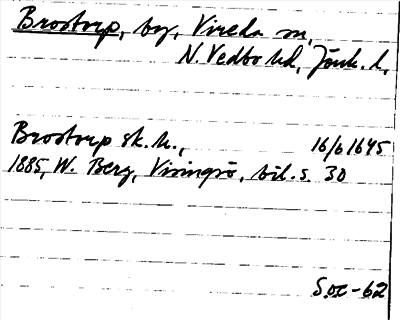 Brostorp, by, Vireda sn,
N. Vedbo hd, Jönk. l.
Brostorp sk. h., 16/6 1645
1885, W. Berg, Visingsö, bil. s. 30
S.O. -62